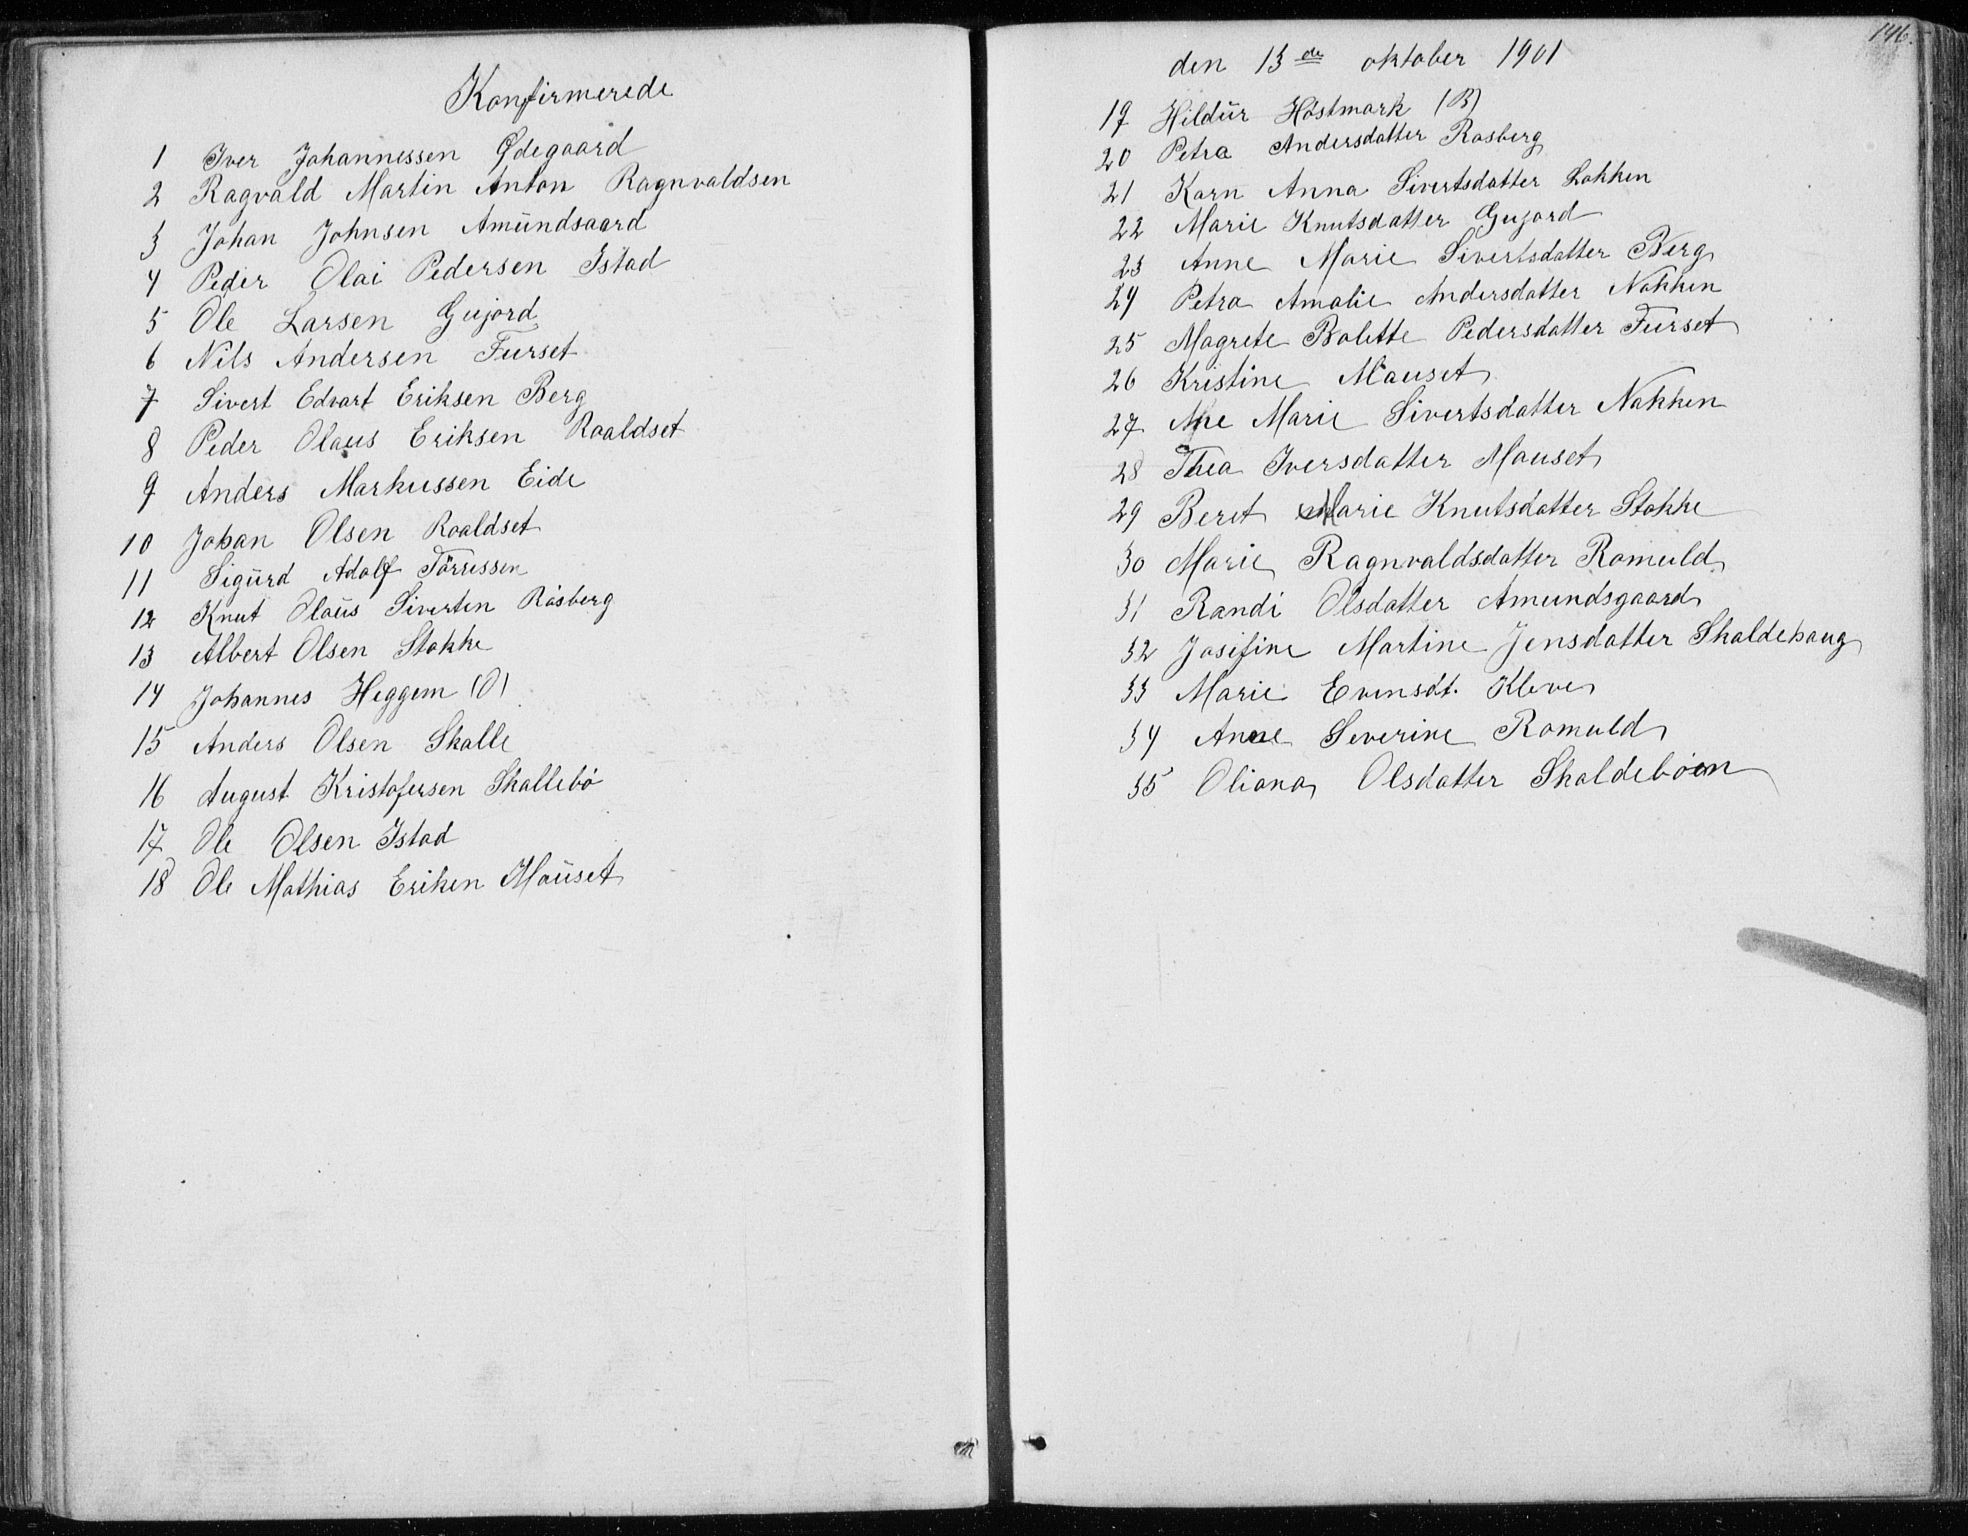 Konfirmerede
1 Iver Johannessen Ødegaard
2 Ragvald Martin Anton Ragnvaldsen
3 Johan Johnsen Amundsaard
4 Peder Olai Pedersen Istad
5 Ole Larsen Gujord
6 Nils Andersen Furset
7 Sivert Edvart Eriksen Berg
8 Peder Olaus Eriksen Roaldset
9 Anders Markussen Eide
10 Johan Olsen Roaldset
11 Sigurd Adolf Törressen
12 Knut Olaus Siverten Råsberg
13 Albert Olsen Stokke
14 Johannes Heggem (O)
15 Anders Olsen Skalle
16 August Kristofersen Skallebö
17 Ole Olsen Istad
18 Ole Mathias Eriken Mauset
146.
den 13de oktober 1901
19 Hildur Höstmark (B)
20 Petra Andersdatter Rasberg
21 Karn Anna Sivertsdatter Lokken
22 Marie Knutsdatter Gujord
23 Anne Marie Sivertsdatter Berg
24 Petra Amalie Andersdatter Nakken
25 Magrete Bolette Pedersdatter Furset
26 Kristine Mauset
27 Marie Sivertsdatter Nakken
28 Thea Iversdatter Mauset
29 Beret Marie Knutsdatter Stokke
30 Marie Ragnvaldsdatter Romuld
31 Randi Olsdatter Amundsgaard
32 Josifine Martine Jensdatter Skaldehaug
33 Marie Evensdt. Kleve
34 Anne Severine Romuld
35 Oliana Olsdatter Skaldeböen